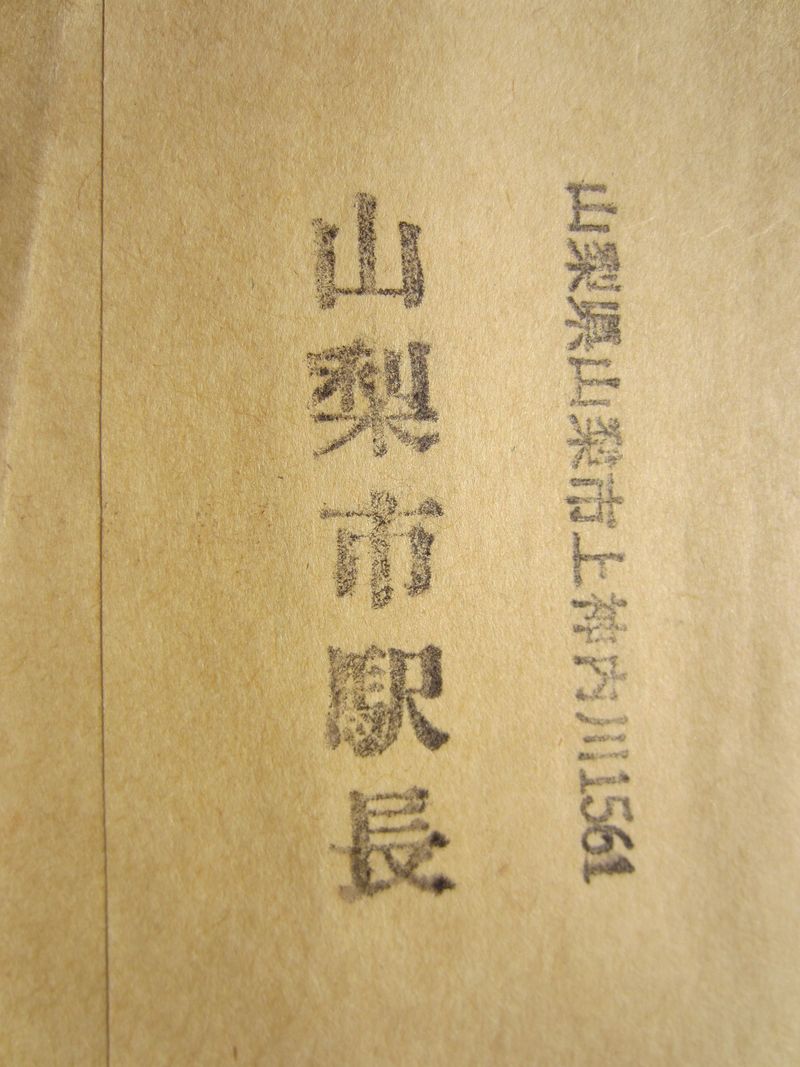 山梨県山梨市上神内川1561
山梨市駅長